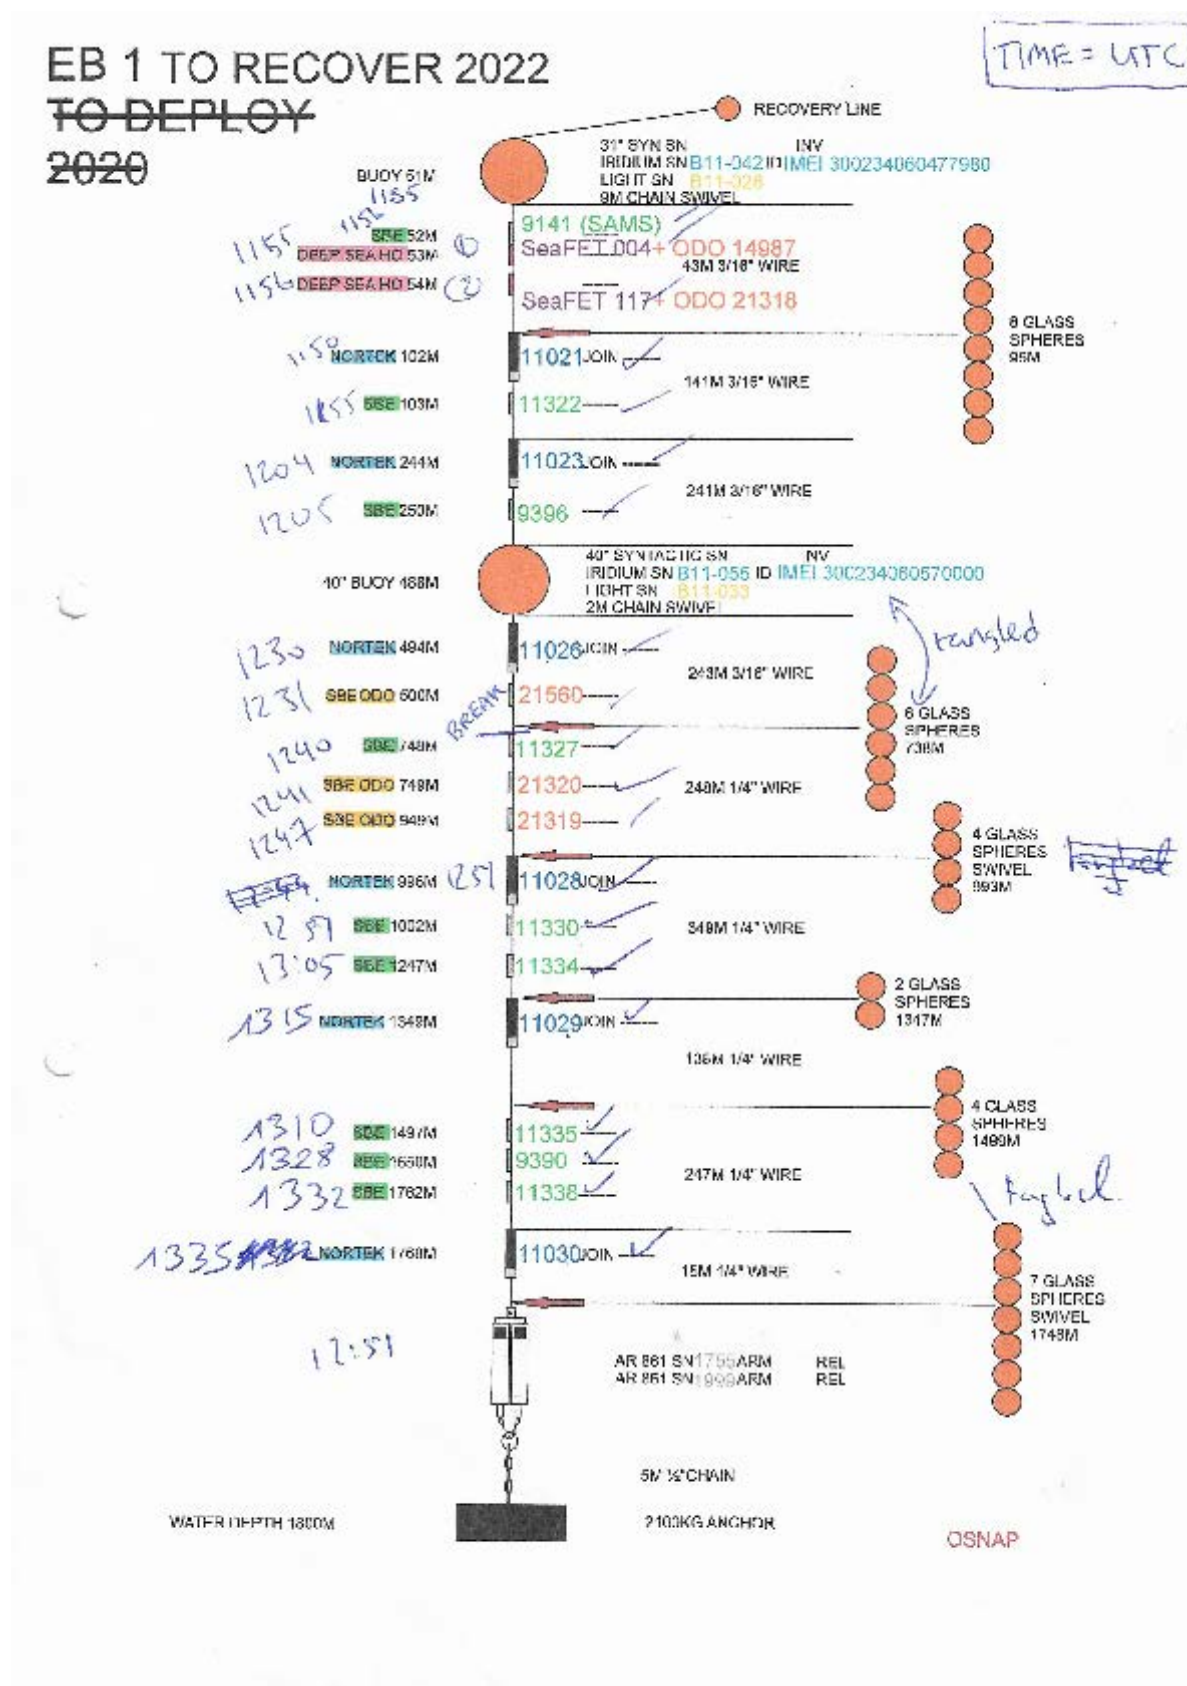 TIME = UTC
EB 1 TO RECOVER 2022
TO DEPLOY
2020
RECOVERY LINE
31" SYN SN INV
IRIDIUM SN B11-042 ID IMEI 300234060477980
LIGHT SN B11-028
9M CHAIN SWIVEL
BUOY 51M
1155
1156 SBE 52M 9141 (SAMS)
1155 DEEP SEA HO 53M 1 SeaFET 004 + ODO 14987
43M 3/16" WIRE
1156 DEEP SEA HO 54M 2 SeaFET 117 + ODO 21318
8 GLASS
SPHERES
95M
1150 NORTEK 102M 11021 JOIN
141M 3/16" WIRE
1155 SBE 103M 11322
1204 NORTEK 244M 11023 JOIN
241M 3/16" WIRE
1205 SBE 250M 9396
40" SYNTACTIC SN INV
IRIDIUM SN B11-055 ID IMEI 300234060570000
LIGHT SN B11-033
2M CHAIN SWIVEL
40" BUOY 488M
tangled
1230 NORTEK 494M 11026 JOIN
243M 3/16" WIRE
1231 SBE ODO 500M 21560
BREAK
6 GLASS
SPHERES
738M
1240 SBE 748M 11327
1241 SBE ODO 749M 21320
248M 1/4" WIRE
1247 SBE ODO 949M 21319
4 GLASS
SPHERES
SWIVEL
993M
tangled
NORTEK 996M 1257 11028 JOIN
1259 SBE 1002M 11330
349M 1/4" WIRE
13:05 SBE 1247M 11334
2 GLASS
SPHERES
1347M
1315 NORTEK 1349M 11029 JOIN
136M 1/4" WIRE
4 GLASS
SPHERES
1489M
1310 SBE 1497M 11335
1328 SBE 1650M 9390
247M 1/4" WIRE
1332 SBE 1762M 11338
tangled
1335 NORTEK 1768M 11030 JOIN
15M 1/4" WIRE
7 GLASS
SPHERES
SWIVEL
1748M
12:51
AR 861 SN 1755 ARM REL
AR 861 SN 1999 ARM REL
5M ½" CHAIN
WATER DEPTH 1800M
2100KG ANCHOR
OSNAP